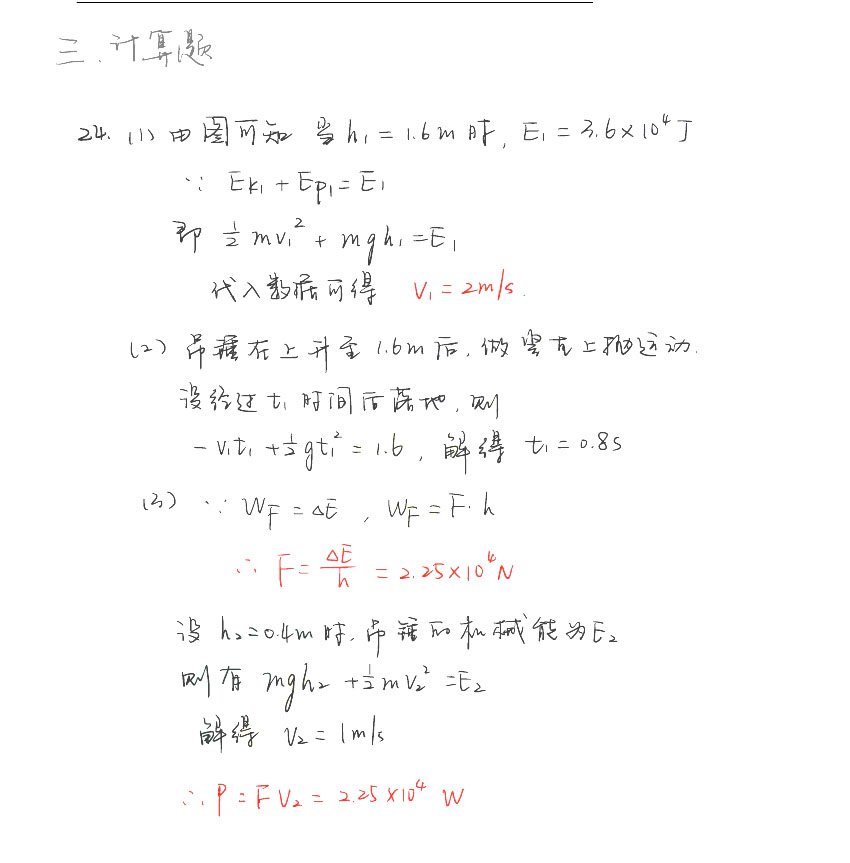 三、计算题
24. (1) 由图可知 当h₁=1.6m时, E₁=3.6×10⁴J
∵ Ek₁+Ep₁=E₁
即 ½mv₁²+mgh₁=E₁
代入数据可得 V₁=2m/s.
(2) 吊锤在上升至1.6m后, 做竖直上抛运动.
设经过t₁时间后落地, 则
-v₁t₁+½gt₁²=1.6, 解得 t₁=0.8s
(3) ∵ W_F=ΔE, W_F=F·h
∴ F=ΔE/h=2.25×10⁴N
设h₂=0.4m时, 吊锤的机械能为E₂
则有 mgh₂+½mv₂²=E₂
解得 v₂=1m/s
∴ P=FV₂=2.25×10⁴ W